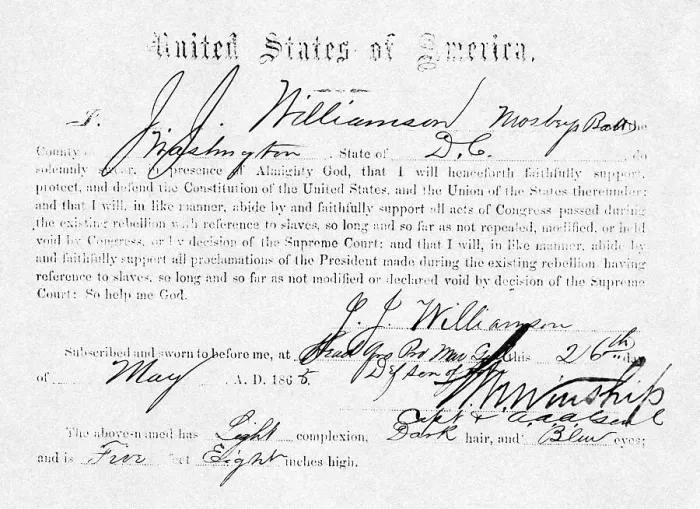 United States of America.
I, J. J. Williamson Mosbys Batt. the
County of Washington, State of D. C., do
solemnly swear, in presence of Almighty God, that I will henceforth faithfully support,
protect, and defend the Constitution of the United States, and the Union of the States thereunder;
and that I will, in like manner, abide by and faithfully support all acts of Congress passed during
the existing rebellion with reference to slaves, so long and so far as not repealed, modified, or held
void by Congress, or by decision of the Supreme Court; and that I will, in like manner, abide by
and faithfully support all proclamations of the President made during the existing rebellion having
reference to slaves, so long and so far as not modified or declared void by decision of the Supreme
Court: So help me God.
J. J. Williamson
Subscribed and sworn to before me, at Head Qrs Pro Mar this 26th day
of May A. D. 1865.
Winship
Capt &
The above-named has Light complexion, Dark hair, and Blue eyes;
and is Five feet Eight inches high.